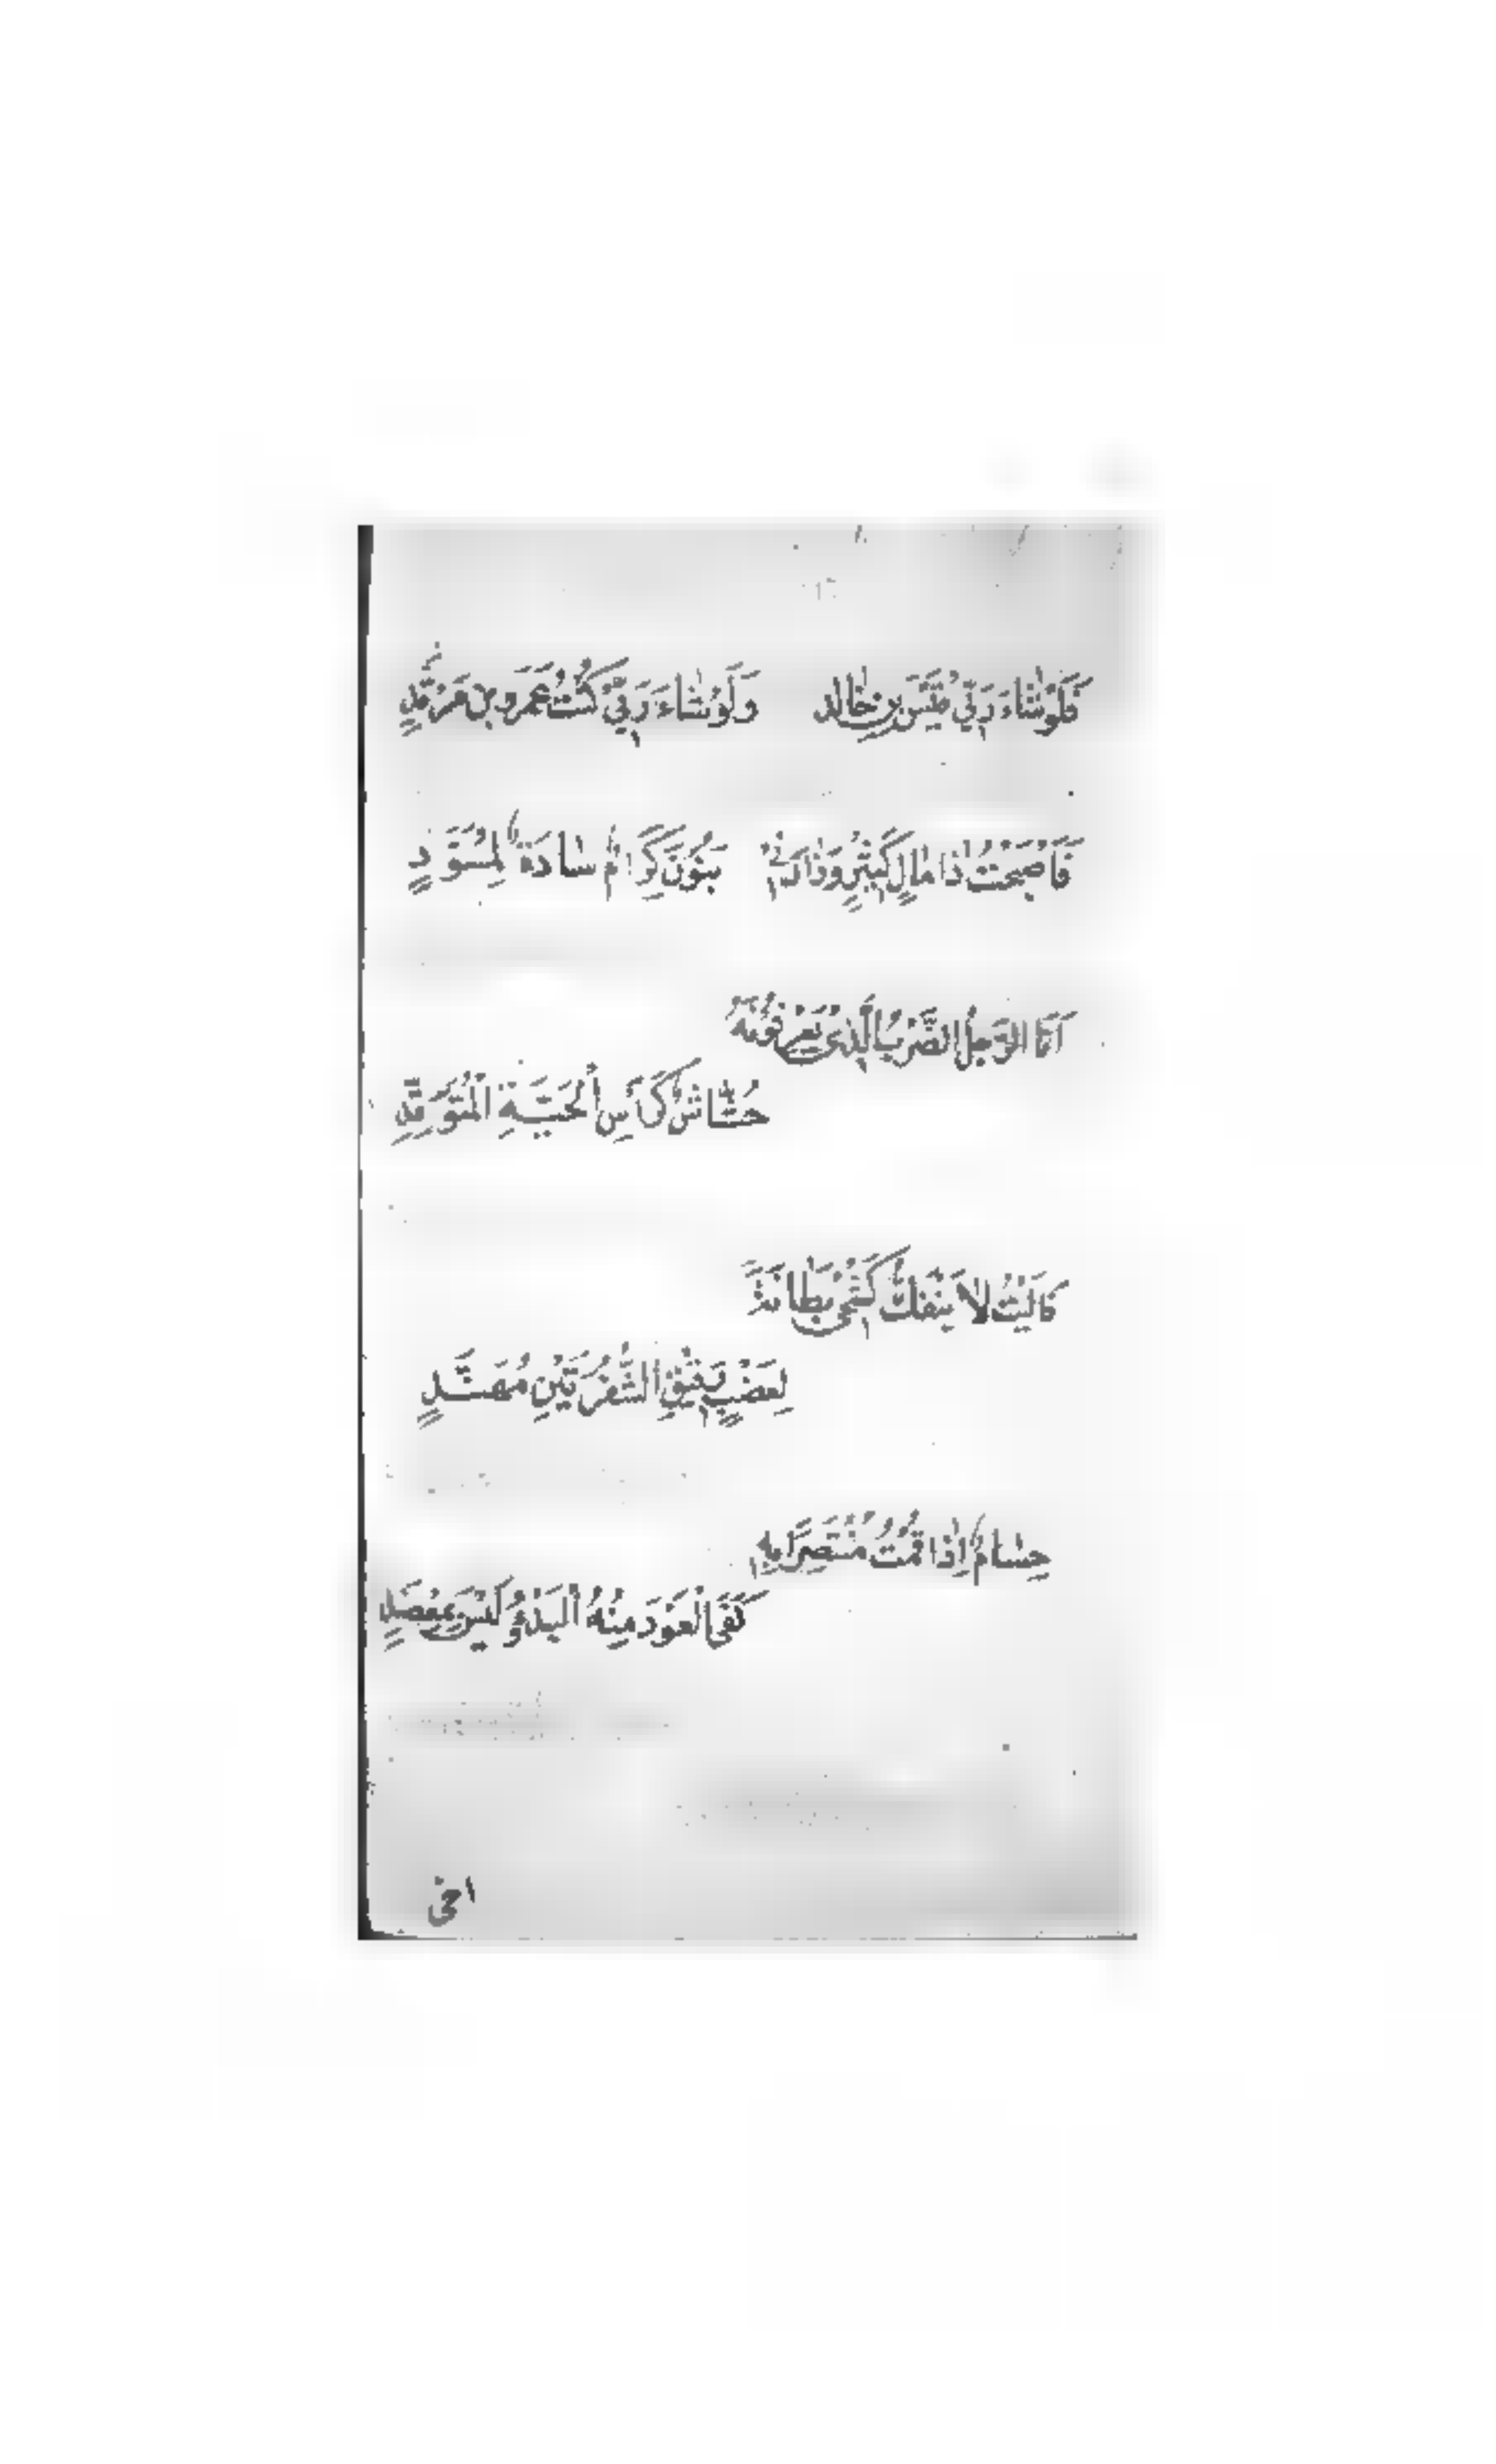 فَلَوْ شَاءَ رَبِّي قَيْسَ بن خَالد وَلَوْ شَاءَ رَبِّي كُنْتُ عَمْرَو بن مَرْثَدِ
فَاَصْبَحْتُ ذَا مَالٍ كَثِيْرٍ وَزَارَنِي بَنُوْنَ كِرَامٌ سَادَةٌ لِمُسَوَّدِ
اَنَا الرَّجُلُ الضَّرْبُ الَّذِي تَعْرِفُوْنَهُ
خَشَاشٌ كَرَأْسِ الْحَيَّةِ الْمُتَوَقِّدِ
فَآلَيْتُ لاَ يَنْفَكُّ كَشْحِي بِطَانَةً
لِعَضْبٍ رَقِيْقِ الشَّفْرَتَيْنِ مُهَنَّدِ
حُسَامٌ اِذَا قُمْتُ مُنْتَصِرًا بِهِ
كَفَى الْعَوْدَ مِنْهُ الْبَدْءُ لَيْسَ بِمِعْضَدِ
اخى